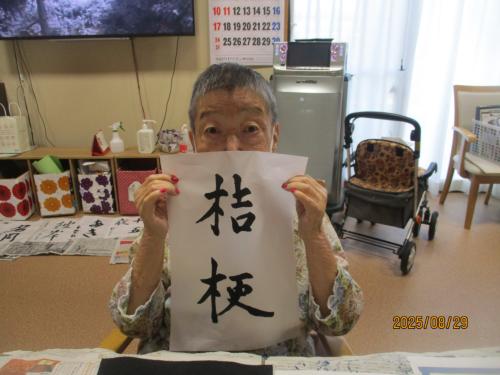 10 11 12 13 14 15 16
17 18 19 20 21 22 23
25 26 27 28 29
桔
梗
2025/08/29